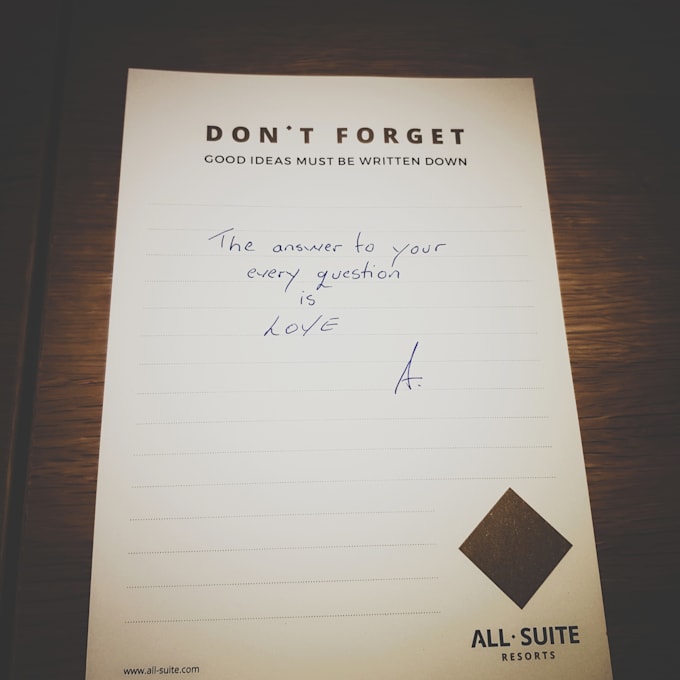 DON'T FORGET
GOOD IDEAS MUST BE WRITTEN DOWN
The answer to your
every question
is
LOVE
A.
ALL·SUITE
RESORTS
www.all-suite.com